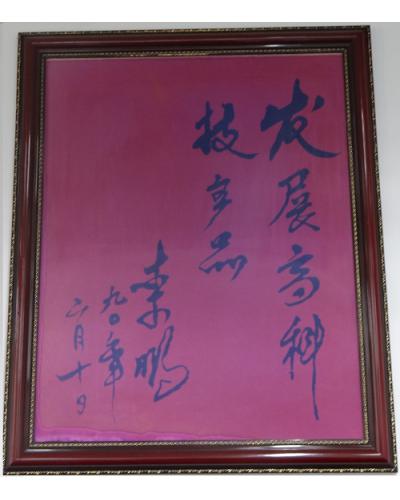 发展高科
技产品
李鹏
九〇年
六月十日